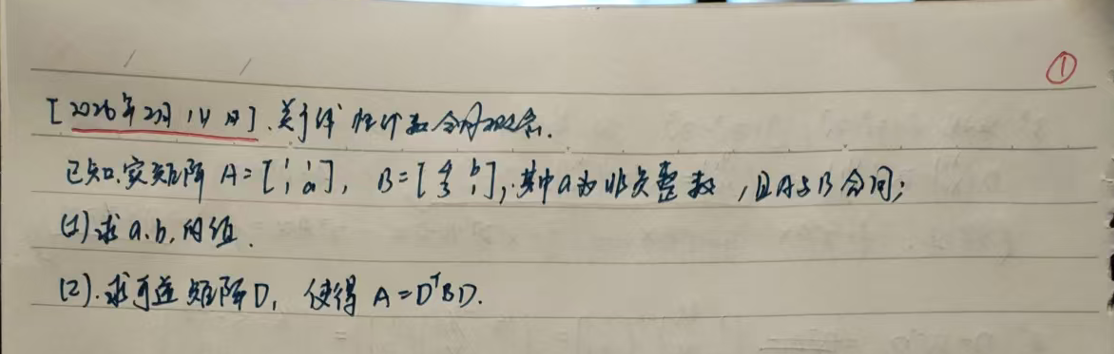 ①
[2026年2月14日].关于线性代数合同概念.
已知实矩阵 A=[1 1; 1 a], B=[4 b; 3 1],其中a为非负整数,且A与B合同;
(1)求a.b,的值.
(2).求可逆矩阵D, 使得 A=DᵀBD.